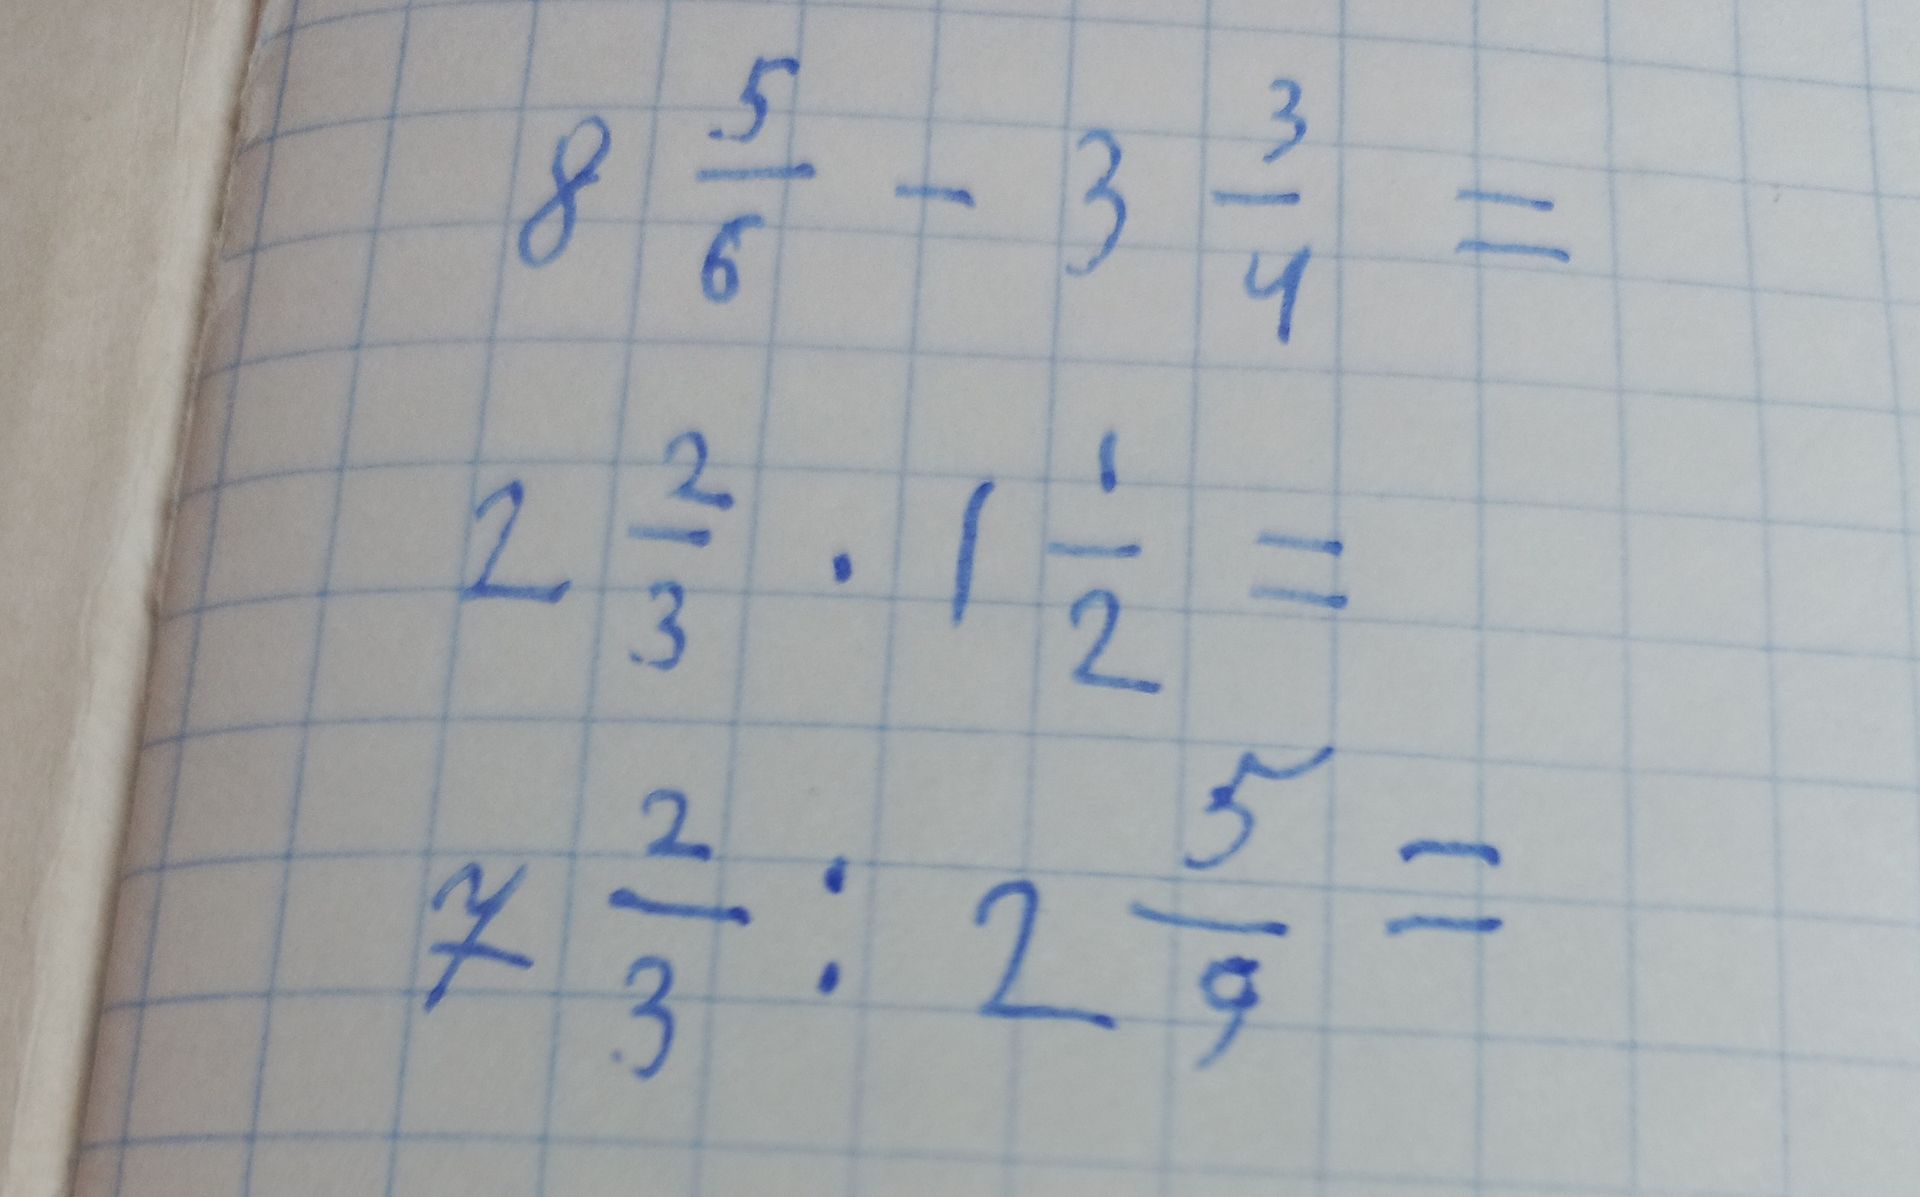 8 5/6 - 3 3/4 =
2 2/3 · 1 1/2 =
7 2/3 : 2 5/9 =